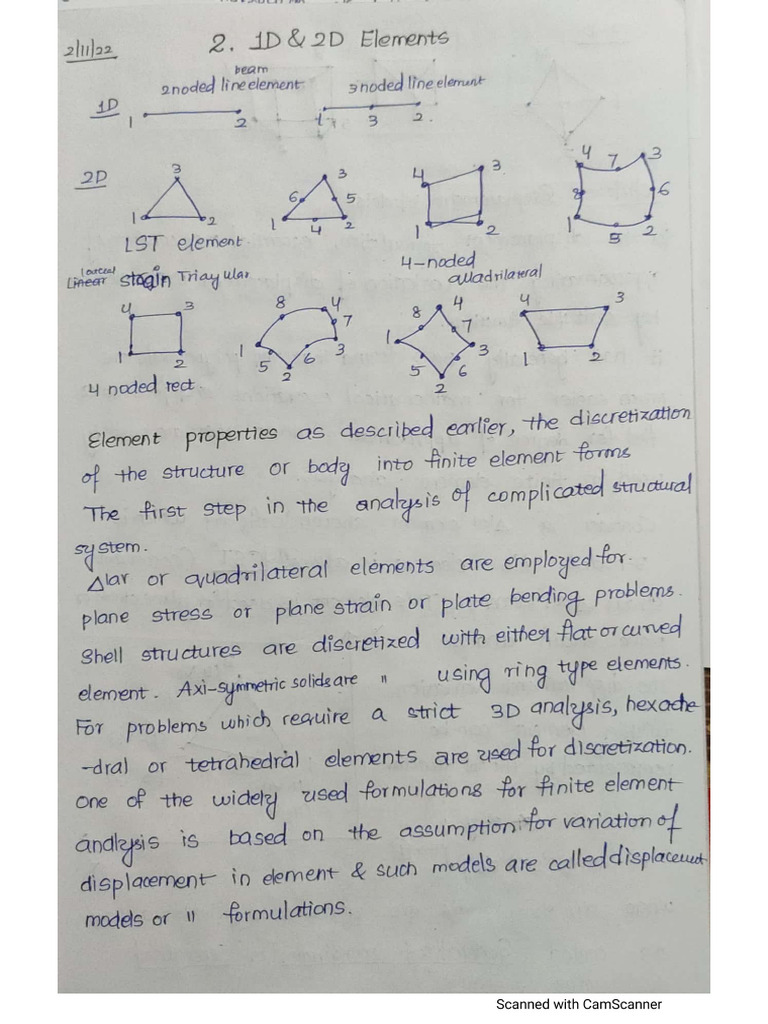 2/11/22
2. 1D & 2D Elements
beam
2 noded line element
3 noded line element
1D
1 2 1 3 2
2D
3
1 2
3
6 5
1 4 2
4 3
1 2
4 7 3
8 6
1 5 2
LST element
4-noded
quadrilateral
Linear strain Triangular
4 3
1 2
8 4
7
1 3
5 6
2
4
8 7
1 3
5 6
2
4 3
1 2
4 noded rect.
Element properties as described earlier, the discretization
of the structure or body into finite element forms
The first step in the analysis of complicated structural
system.
Δlar or quadrilateral elements are employed for.
plane stress or plane strain or plate bending problems.
Shell structures are discretized with either flat or curved
element. Axi-symmetric solids are " using ring type elements.
For problems which require a strict 3D analysis, hexache
-dral or tetrahedral elements are used for discretization.
One of the widely used formulations for finite element
analysis is based on the assumption for variation of
displacement in element & such models are called displacement
models or " formulations.
Scanned with CamScanner